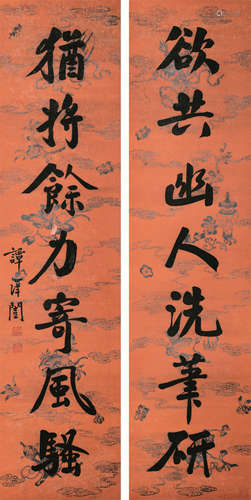 欲共幽人洗筆研
猶將餘力寄風騷
譚澤闓